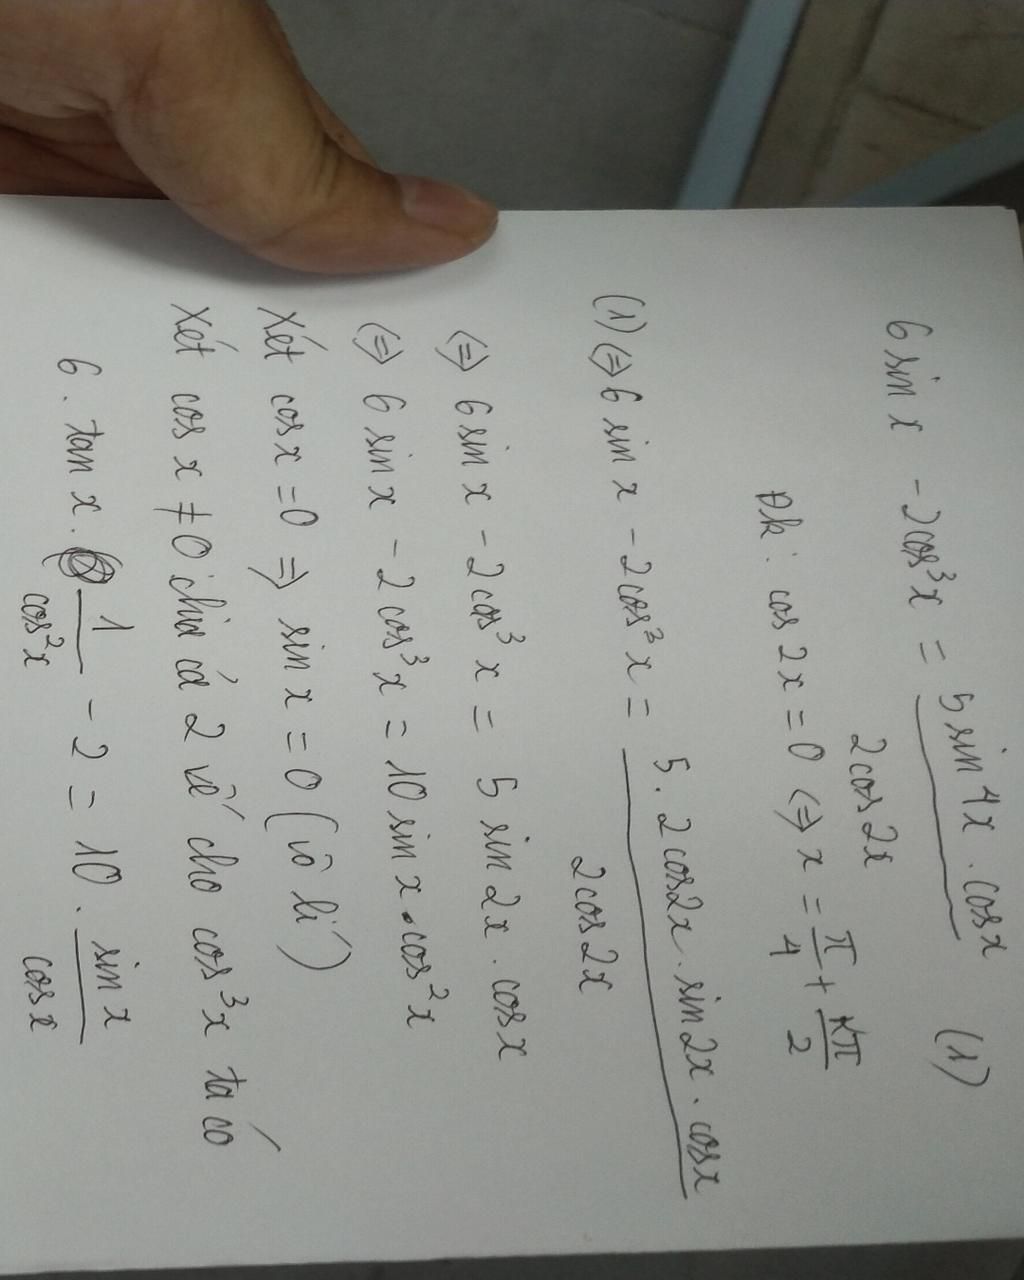 6 sin x - 2cos³x = 5 sin 4x . cos x / 2cos 2x (1)
Đk : cos 2x = 0 <=> x = π/4 + kπ/2
(1) <=> 6 sin x - 2cos³x = 5 . 2 cos2x . sin 2x . cos x / 2 cos 2x
<=> 6 sin x - 2 cos³ x = 5 sin 2x . cos x
<=> 6 sin x - 2 cos³x = 10 sin x . cos²x
Xét cos x = 0 => sin x = 0 (vô lí)
Xét cos x ≠ 0 chia cả 2 vế cho cos³x ta có
6 . tan x . 1/cos²x - 2 = 10 . sin x / cos x